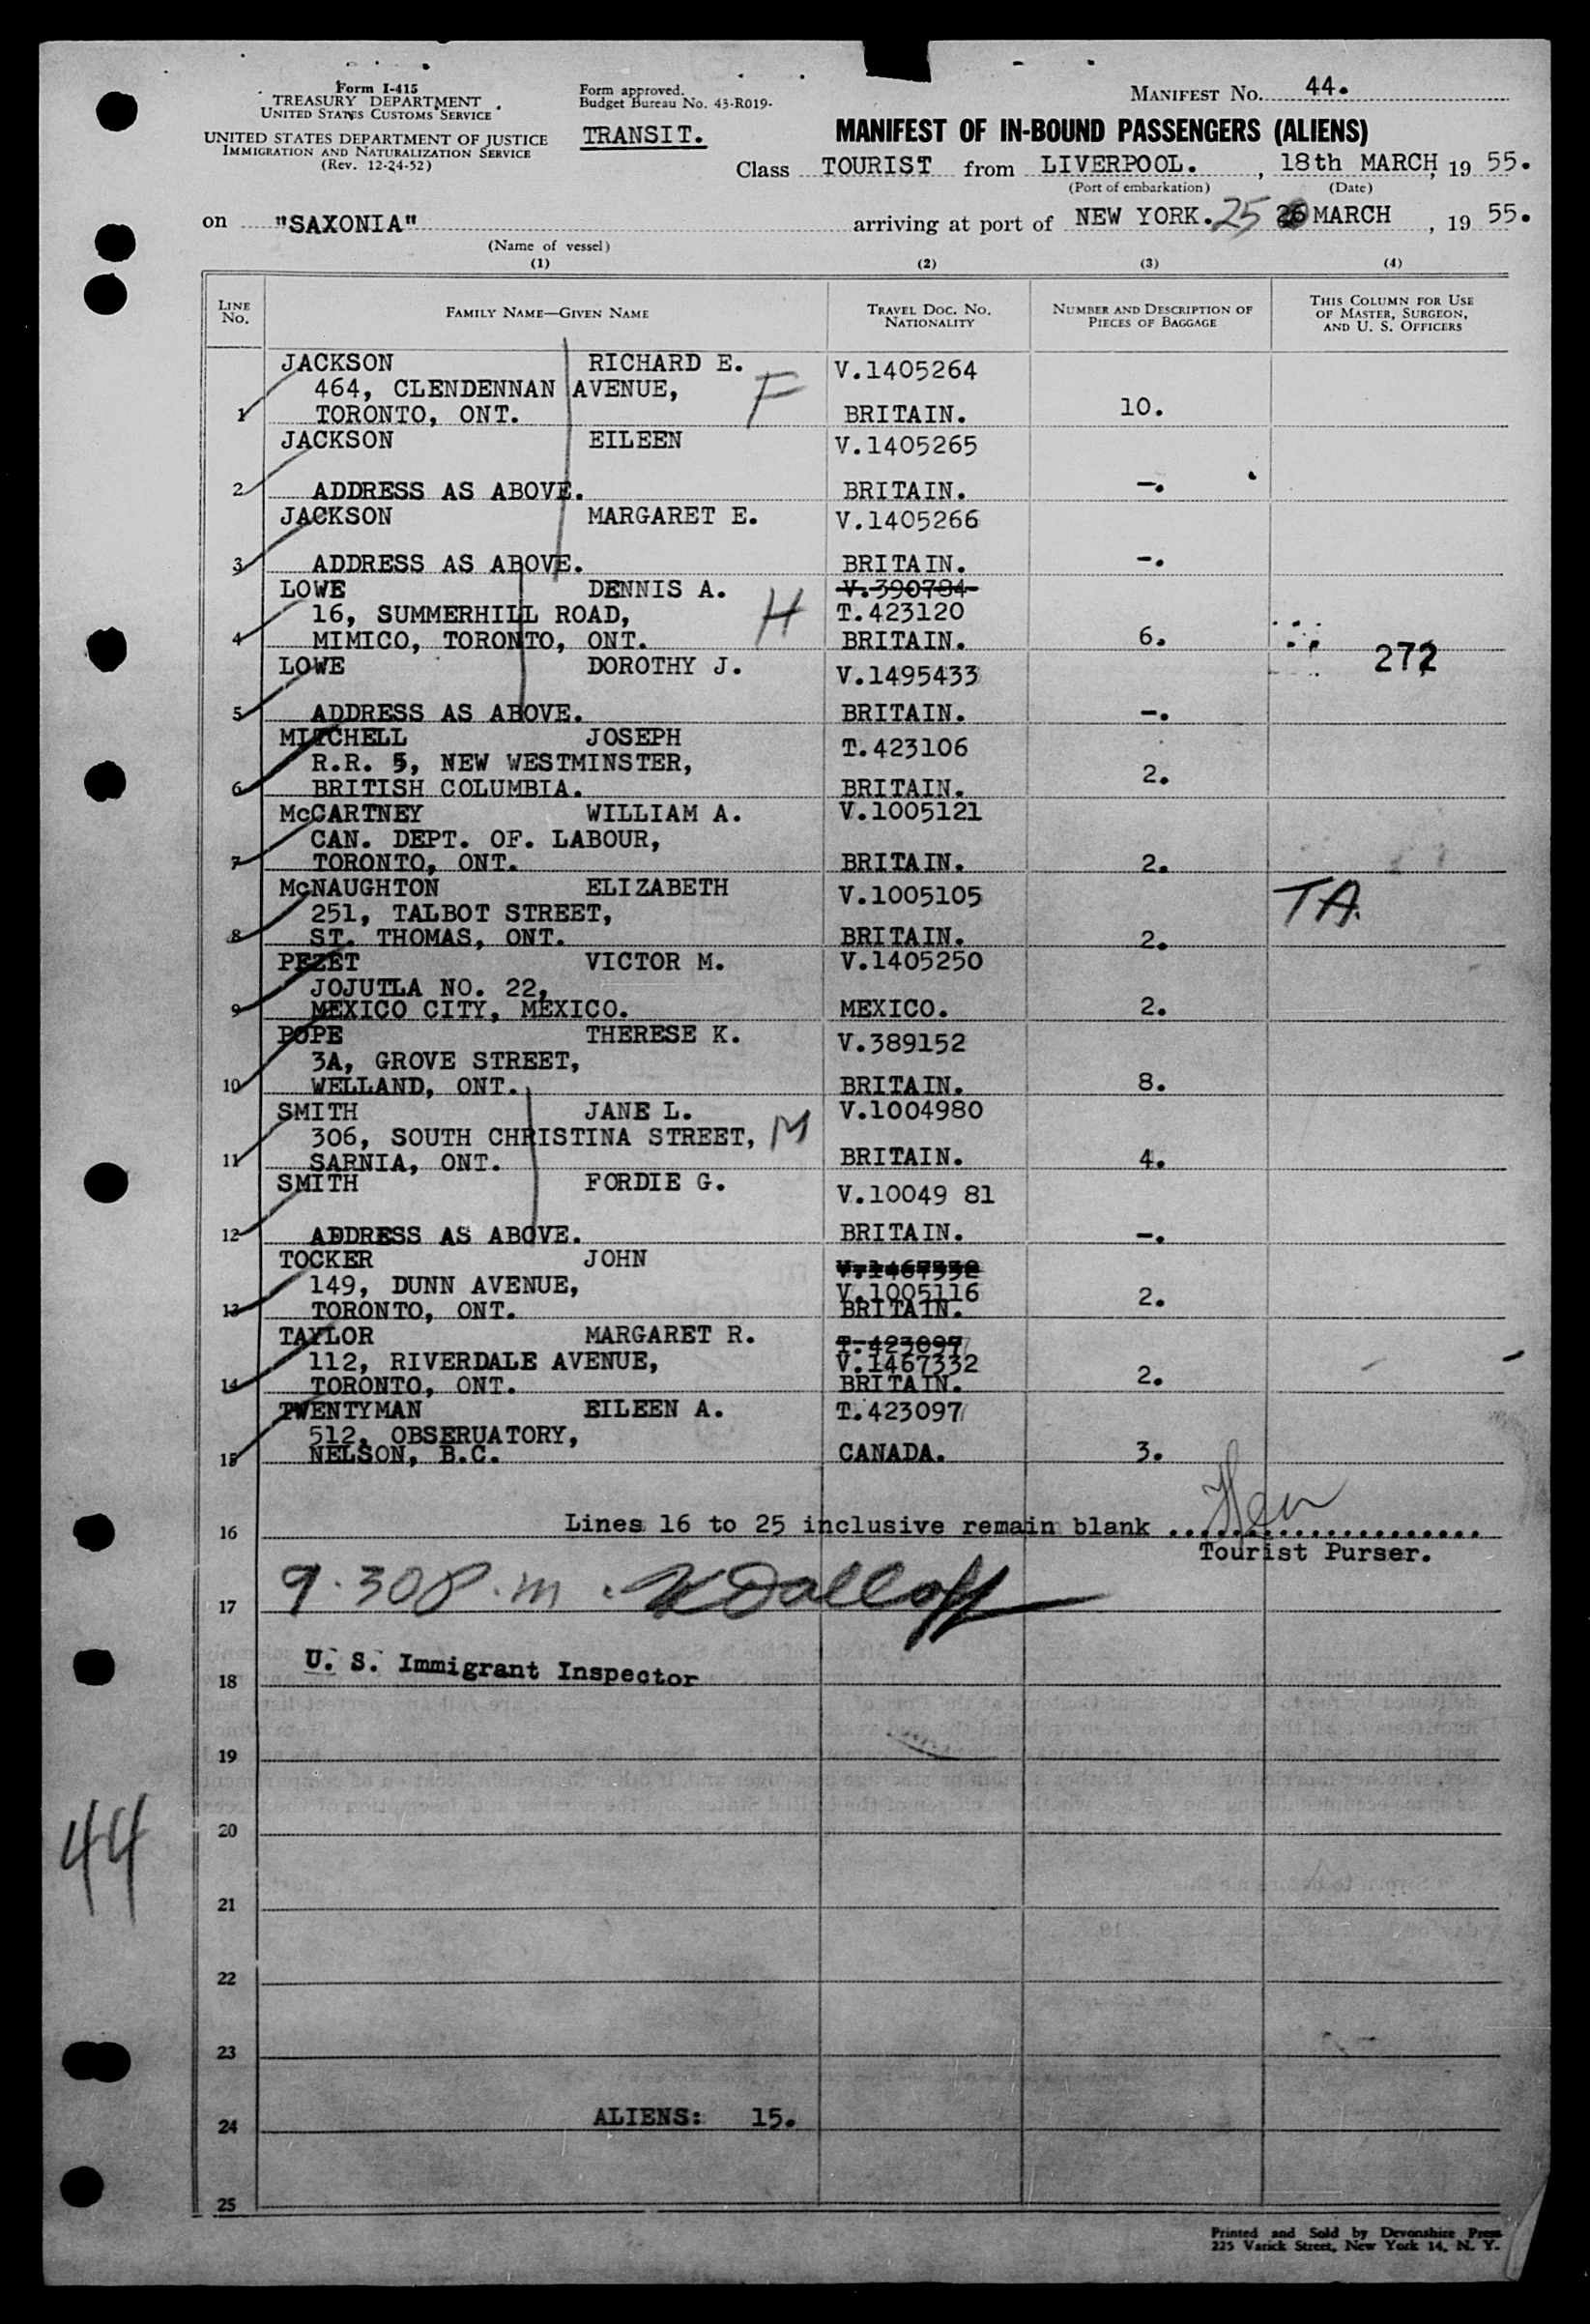 Form I-415
TREASURY DEPARTMENT
UNITED STATES CUSTOMS SERVICE
UNITED STATES DEPARTMENT OF JUSTICE
IMMIGRATION AND NATURALIZATION SERVICE
(Rev. 12-24-52)
Form approved.
Budget Bureau No. 43-R019-
TRANSIT.
MANIFEST NO. 44.
MANIFEST OF IN-BOUND PASSENGERS (ALIENS)
Class TOURIST from LIVERPOOL. , 18th MARCH, 19 55.
(Port of embarkation) (Date)
on "SAXONIA" arriving at port of NEW YORK. 25 26 MARCH , 19 55.
(Name of vessel)
(1) (2) (3) (4)
LINE NO. FAMILY NAME—GIVEN NAME TRAVEL DOC. NO. NATIONALITY NUMBER AND DESCRIPTION OF PIECES OF BAGGAGE THIS COLUMN FOR USE OF MASTER, SURGEON, AND U. S. OFFICERS
JACKSON RICHARD E. V.1405264
464, CLENDENNAN AVENUE, F
1 TORONTO, ONT. BRITAIN. 10.
JACKSON EILEEN V.1405265
2 ADDRESS AS ABOVE. BRITAIN. -.
JACKSON MARGARET E. V.1405266
3 ADDRESS AS ABOVE. BRITAIN. -.
LOWE DENNIS A. V.390784
16, SUMMERHILL ROAD, H T.423120
4 MIMICO, TORONTO, ONT. BRITAIN. 6.
272
LOWE DOROTHY J. V.1495433
5 ADDRESS AS ABOVE. BRITAIN. -.
MITCHELL JOSEPH T.423106
R.R. 5, NEW WESTMINSTER,
6 BRITISH COLUMBIA. BRITAIN. 2.
McCARTNEY WILLIAM A. V.1005121
CAN. DEPT. OF. LABOUR,
7 TORONTO, ONT. BRITAIN. 2.
McNAUGHTON ELIZABETH V.1005105 TA.
251, TALBOT STREET,
8 ST. THOMAS, ONT. BRITAIN. 2.
PEZET VICTOR M. V.1405250
JOJUTLA NO. 22,
9 MEXICO CITY, MEXICO. MEXICO. 2.
POPE THERESE K. V.389152
3A, GROVE STREET,
10 WELLAND, ONT. BRITAIN. 8.
SMITH JANE L. V.1004980
306, SOUTH CHRISTINA STREET, M
11 SARNIA, ONT. BRITAIN. 4.
SMITH FORDIE G. V.10049 81
12 ADDRESS AS ABOVE. BRITAIN. -.
TOCKER JOHN V.1467332
149, DUNN AVENUE, V.1005116
13 TORONTO, ONT. BRITAIN. 2.
TAYLOR MARGARET R. T.423097
112, RIVERDALE AVENUE, V.1467332
14 TORONTO, ONT. BRITAIN. 2.
TWENTYMAN EILEEN A. T.423097
512, OBSERUATORY,
15 NELSON, B.C. CANADA. 3.
16 Lines 16 to 25 inclusive remain blank ....................
Tourist Purser.
17 9.30 P.m.
18 U. S. Immigrant Inspector
19
20
44
21
22
23
24 ALIENS: 15.
25
Printed and Sold by Devonshire Press
225 Varick Street, New York 14, N. Y.